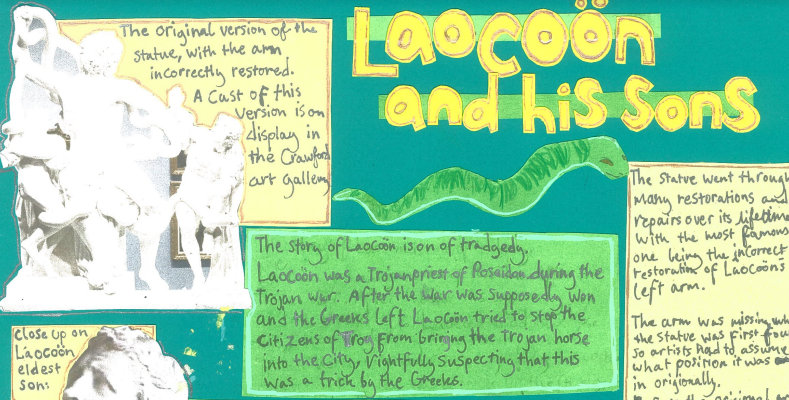 Laocoön
and his sons
The original version of the
statue, with the arm
incorrectly restored.
A cast of this
version is on
display in
the Crawford
art gallery
The story of Laocoön is on of tradgedy.
Laocoön was a Trojan priest of Poseidon during the
Trojan war. After the war was supposedly won
and the Greeks left Laocoön tried to stop the
citizens of Troy from bringing the Trojan horse
into the city, rightfully suspecting that this
was a trick by the Greeks.
The statue went through
many restorations and
repairs over its lifetime
with the most famous
one being the incorrect
restoration of Laocoöns
left arm.
The arm was missing
the statue was first
so artists had to assume
what position it was
in origionally.
close up on
Laocoön
eldest
son: